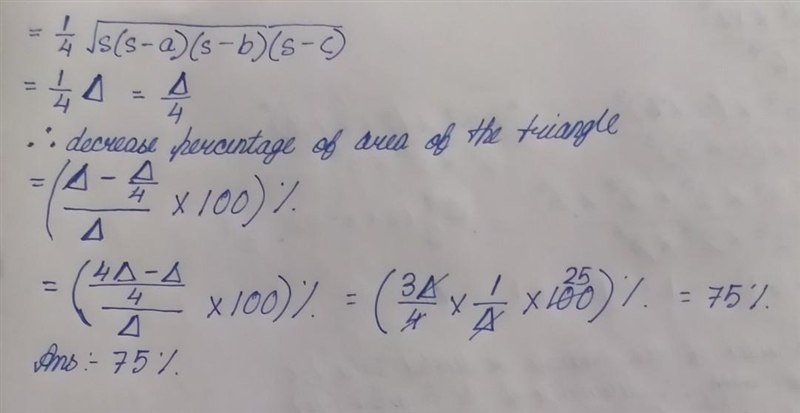 = 1/4 √s(s-a)(s-b)(s-c)
= 1/4 Δ = Δ/4
∴ decrease percentage of area of the triangle
= ((Δ - Δ/4)/Δ × 100) %.
= (((4Δ - Δ)/4)/Δ × 100) %. = (3Δ/4 × 1/Δ × 100 25) %. = 75 %.
Ans :- 75 %.